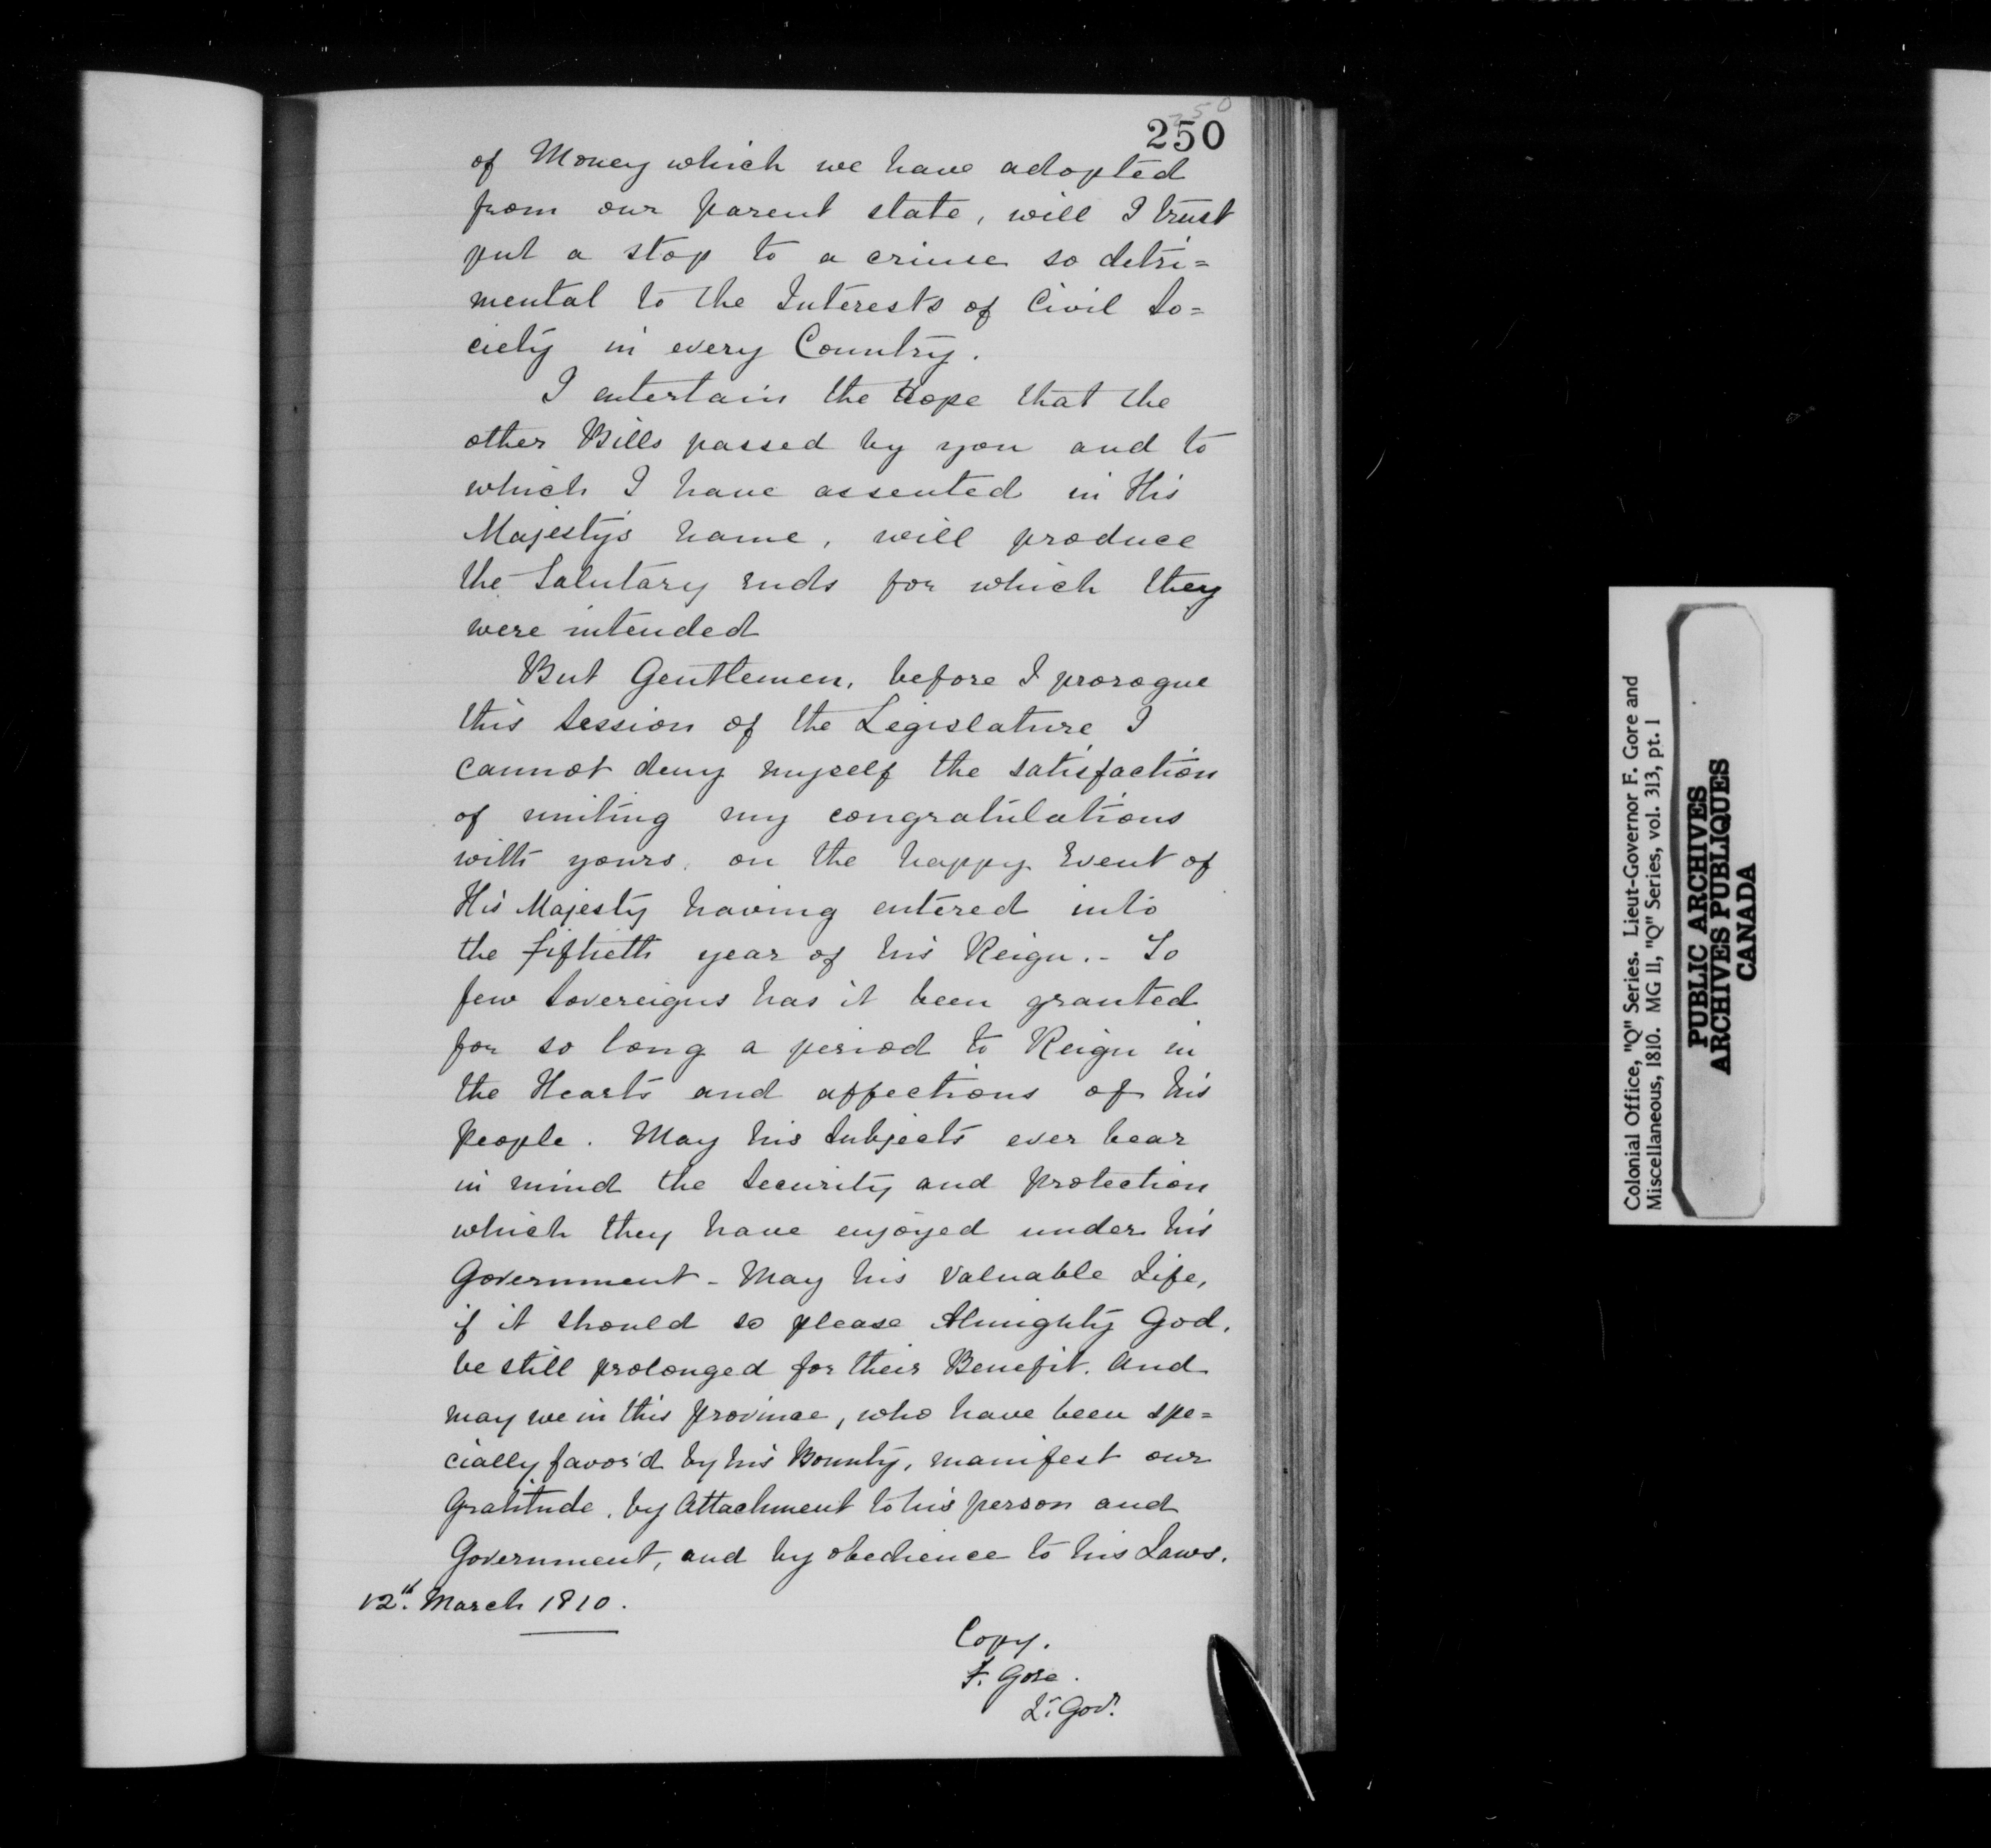 250
250
of Money which we have adopted
from our parent state, will I trust
put a stop to a crime so detri=
mental to the Interests of Civil So=
ciety in every Country.
I entertain the hope that the
other Bills passed by you and to
which I have assented in His
Majesty's name, will produce
the Salutary ends for which they
were intended
But Gentlemen, before I prorogue
this Session of the Legislature, I
cannot deny myself the satisfaction
of uniting my congratulations
with yours, on the happy Event of
His Majesty having entered into
the fiftieth year of his Reign. - To
few Sovereigns has it been granted
for so long a period to Reign in
the Hearts and affections of his
people. May his Subjects ever bear
in mind the Security and protection
which they have enjoyed under his
Government - May his Valuable Life,
if it should so please Almighty God,
be still prolonged for their Benefit. And
may we in this province, who have been spe=
cially favor'd by his Bounty, manifest our
Gratitude, by Attachment to his person and
Government, and by obedience to his Laws.
12th. March 1810.
Copy.
F. Gore.
Lt. Govr.
Colonial Office, "Q" Series. Lieut-Governor F. Gore and
Miscellaneous, 1810. MG 11, "Q" Series, vol. 313, pt. 1
PUBLIC ARCHIVES
ARCHIVES PUBLIQUES
CANADA